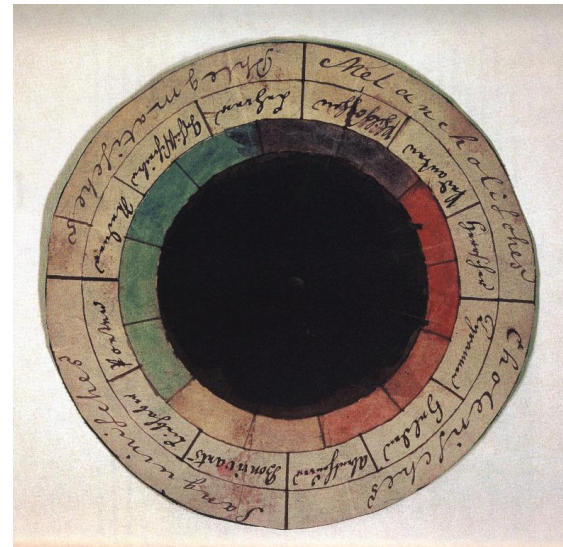 Melancholisches
Cholerisches
Sanguinisches
Phlegmatisches
Philosophen
Pedanten
Herrscher
Tyrannen
Helden
Abentheurer
Bonvivants
Liebhaber
Poeten
Redner
Lehrer